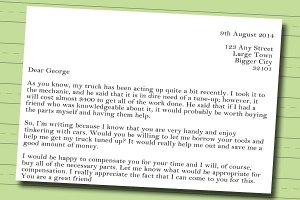 9th August 2014
123 Any Street
Large Town
Bigger City
32101
Dear George
As you know, my truck has been acting up quite a bit recently. I took it to
the mechanic, and he said that it is in dire need of a tune-up; however, it
will cost almost $400 to get all of the work done. He said that if I had a
friend who was knowledgeable about it, it would probably be worth buying
the parts myself and having them help.
So, I'm writing because I know that you are very handy and enjoy
tinkering with cars. Would you be willing to let me borrow your tools and
help me get my truck tuned up? It would really help me out and save me a
good amount of money.
I would be happy to compensate you for your time and I will, of course,
buy all of the necessary parts. Let me know what would be appropriate for
compensation. I really appreciate the fact that I can come to you for this.
You are a great friend